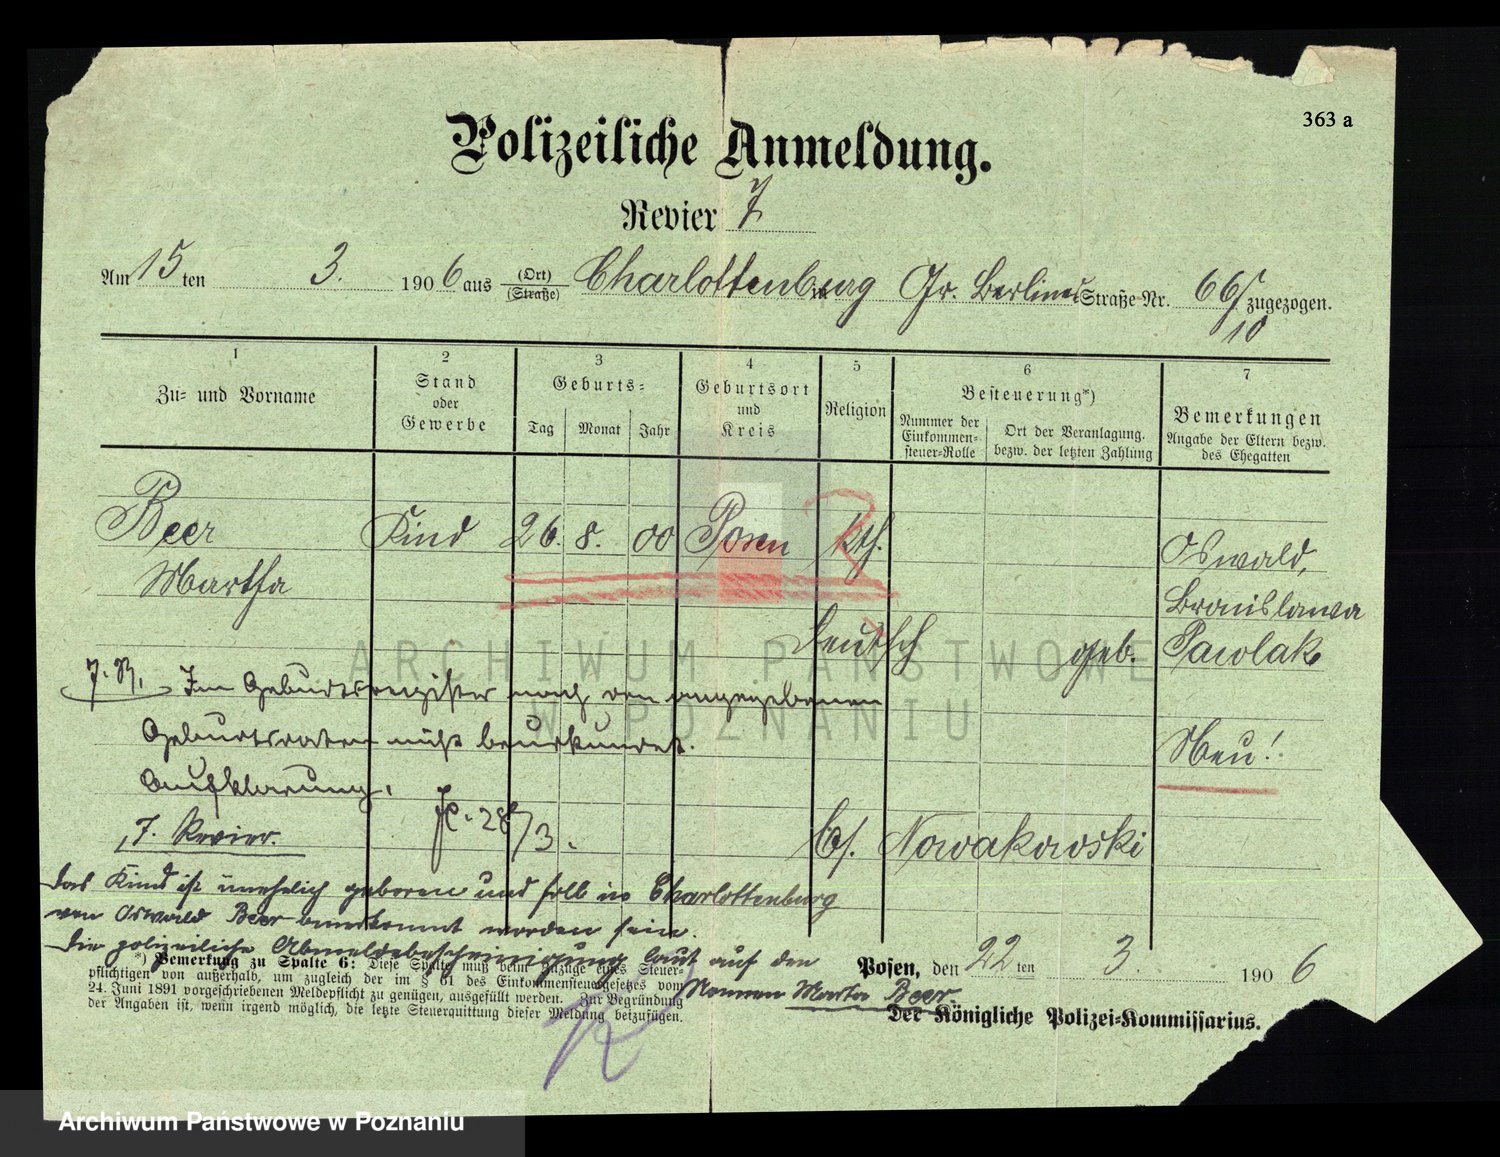 363 a
Polizeiliche Anmeldung.
Revier 7
Am 15 ten 3. 1906 aus (Ort) (Straße) Charlottenburg Gr. Berliner Straße Nr. 66 zugezogen.
10
1 2 3 4 5 6 7
Zu- und Vorname
Stand oder Gewerbe
Geburts-
Tag Monat Jahr
Geburtsort und Kreis
Religion
Besteuerung*)
Nummer der Einkommen-steuer-Rolle
Ort der Veranlagung. bezw. der letzten Zahlung
Bemerkungen
Angabe der Eltern bezw. des Ehegatten
Beer Kind 26. 8. 00 Posen kth. Oswald,
Martha Bronislawa
Deutsch geb. Pawlak
Im Geburtsregister nach den angegebenen
Geburtsdaten nicht beurkundet.
Neu!
Aufklärung.
28/3.
7. Revier.
Nowakowski
Das Kind ist unehelich geboren und soll in Charlottenburg
von Oswald Beer anerkannt worden sein.
Die polizeiliche Abmeldebescheinigung laut auf den
Namen Marta Beer.
*) Bemerkung zu Spalte 6: Diese Spalte muß beim Zuzuge eines Steuer-
pflichtigen von außerhalb, um zugleich der im § 61 des Einkommensteuergesetzes vom
24. Juni 1891 vorgeschriebenen Meldepflicht zu genügen, ausgefüllt werden. Zur Begründung
der Angaben ist, wenn irgend möglich, die letzte Steuerquittung dieser Meldung beizufügen.
Posen, den 22 ten 3. 1906
Der Königliche Polizei-Kommissarius.
ARCHIWUM PAŃSTWOWE
W POZNANIU
Archiwum Państwowe w Poznaniu